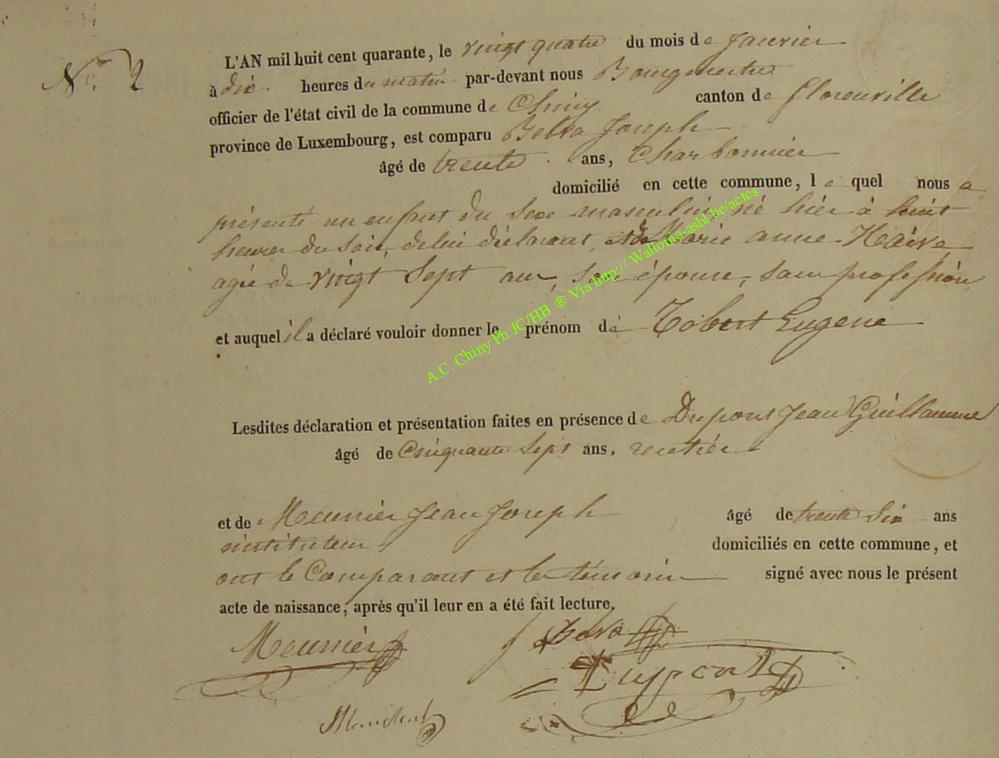 N° 2
L'AN mil huit cent quarante, le vingt quatre du mois de Janvier
à dix heures du matin par-devant nous Bourgmestre
officier de l'état civil de la commune de Chiny canton de florenville
province de Luxembourg, est comparu Belva Joseph
âgé de trente ans, Charbonnier
domicilié en cette commune, le quel nous a
présenté un enfant du sexe masculin né hier à huit
heures du soir, de lui déclarant, et de Marie anne
agée de vingt Sept ans, son épouse, sans profession
et auquel il a déclaré vouloir donner le prénom de Eugene
Lesdites déclaration et présentation faites en présence de Dupont Jean Guillaume
âgé de Cinquante Sept ans, rentier
et de Meunier Jean Joseph âgé de trente Six ans
instituteur domiciliés en cette commune, et
ont le Comparant et les témoins signé avec nous le présent
acte de naissance, après qu'il leur en a été fait lecture.
Meunier J Belva
Dupont
A.C. Chiny Ph JC/HB ® Via http://Wallonia-asbl.be/actes